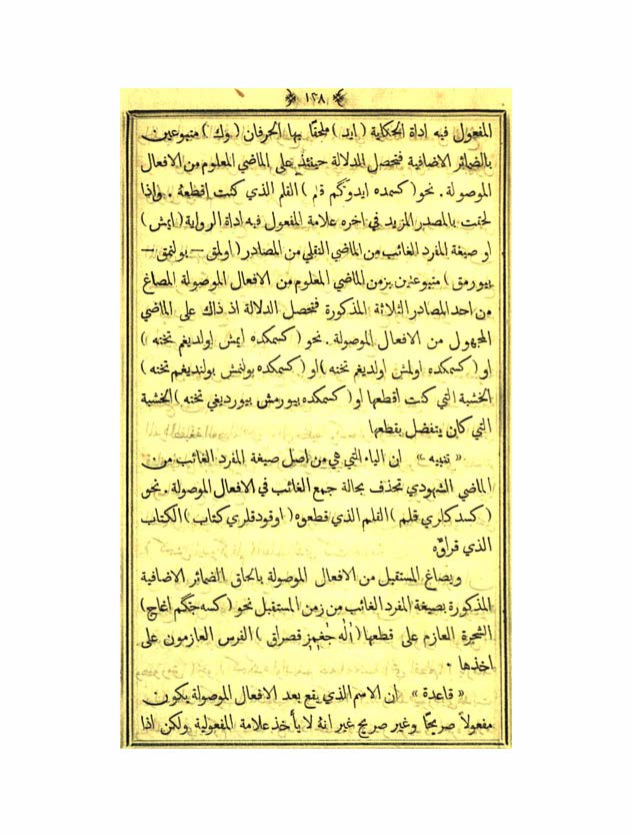 ١٢٨
المفعول فيه اداة الحكاية ( ايد ) ملحقًا بها الحرفان ( وك ) متبوعين
بالضمائر الاضافية فتحصل الدلالة حينئذٍ على الماضي المعلوم من الافعال
الموصولة . نحو ( كسمده ايدوكم قلم ) القلم الذي كنت اقطعهُ . واذا
لحقت بالمصدر المزيد في اخره علامة المفعول فيه اداة الرواية ( ايمش )
او صيغة المفرد الغائب من الماضي النقلي من المصادر ( اولمق — بولنمق —
بيورمق ) متبوعتين بزمن الماضي المعلوم من الافعال الموصولة المصاغ
من احد المصادر الثلاثة المذكورة فتحصل الدلالة اذ ذاك على الماضي
المجهول من الافعال الموصولة . نحو ( كسمكده ايمش اولديغم تخته )
او ( كسمكده اولمش اولديغم تخته ) او ( كسمكده بولنمش بولنديغم تخته )
الخشبة التي كنت اقطعها او ( كسمكده بيورمش بيورديغي تخته ) الخشبة
التي كان يتفضل بقطعها
« تنبيه » ان الياء التي هي من اصل صيغة المفرد الغائب من
الماضي الشهودي تحذف بحالة جمع الغائب في الافعال الموصولة . نحو
( كسدكلري قلم ) القلم الذي قطعوه ( اوقودقلري كتاب ) الكتاب
الذي قرأوهُ
ويصاغ المستقبل من الافعال الموصولة بالحاق الضمائر الاضافية
المذكورة بصيغة المفرد الغائب من زمن المستقبل نحو ( كسه جكم اغاج )
الشجرة العازم على قطعها ( قصراق ) الفرس العازمون على
اخذها .
« قاعدة » ان الاسم الذي يقع بعد الافعال الموصولة يكون
مفعولاً صريحًا وغير صريح غير انهُ لا يأخذ علامة المفعولية ولكن اذا